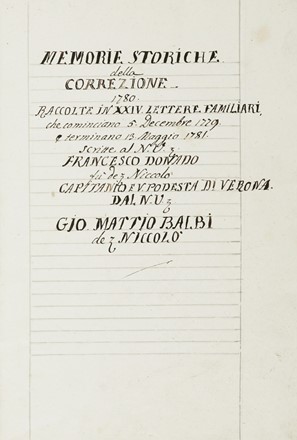 MEMORIE STORICHE
della
CORREZIONE
1780.
RACCOLTE IN XXIV. LETTERE FAMILIARI,
che cominciano 5. Decembre 1779.
e terminano 13. Maggio 1781.
Scritte al N. V.
FRANCESCO DONADO
fù de z Niccolò
CAPITANIO E V. PODESTA DI VERONA
DAL N. V.
GIO MATTIO BALBI
de z NICCOLÒ